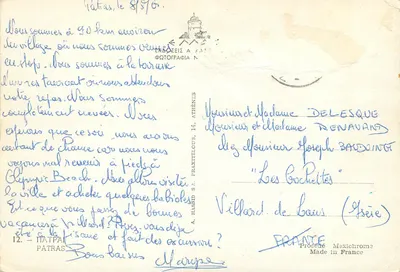 Patras, le 8/5/6
Nous sommes à 90 km environ
du village où nous sommes venus
en stop. Nous sommes à la terrasse
d'un restaurant où nous attendons
notre repas. Nous sommes
complètement crevées. Nous
espérons que ce soir nous aurons
autant de chance car nous nous
voyons mal revenir à pieds à
Olympic Beach. Nous allons visiter
la ville et acheter quelques babioles
Est-ce que vous passez de bonnes
vacances à Villard? Avez-vous déjà
et fait des excursions?
Bons baisers
12. ΠΑΤΡΑΙ
PATRAS
ΦΩΤΟΓΡΑΦΙΑ
ATHÈNES
Monsieur et Madame DELESQUE
Monsieur et Madame RENAVAND
chez Monsieur Joseph
"Les Cochettes"
Villard de Lans (Isère)
FRANCE
Procédé Mexichrome
Made in France